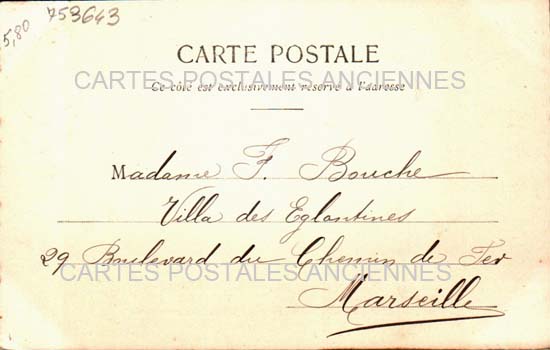 753643
5,80
CARTE POSTALE
CARTES POSTALES ANCIENNES
Ce côté est exclusivement réservé à l'adresse
Madame F. Bouche
Villa des Eglantines
29 Boulevard du Chemin de Fer
CARTES POSTALES ANCIENNES
Marseille